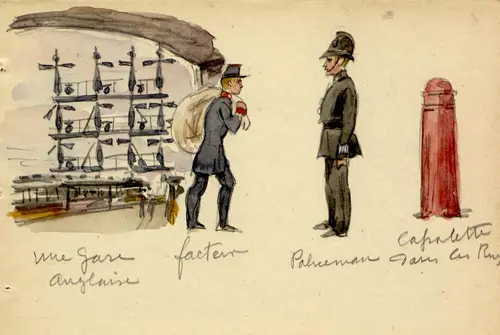 une gare
anglaise
facteur
Policeman
dans les Rues